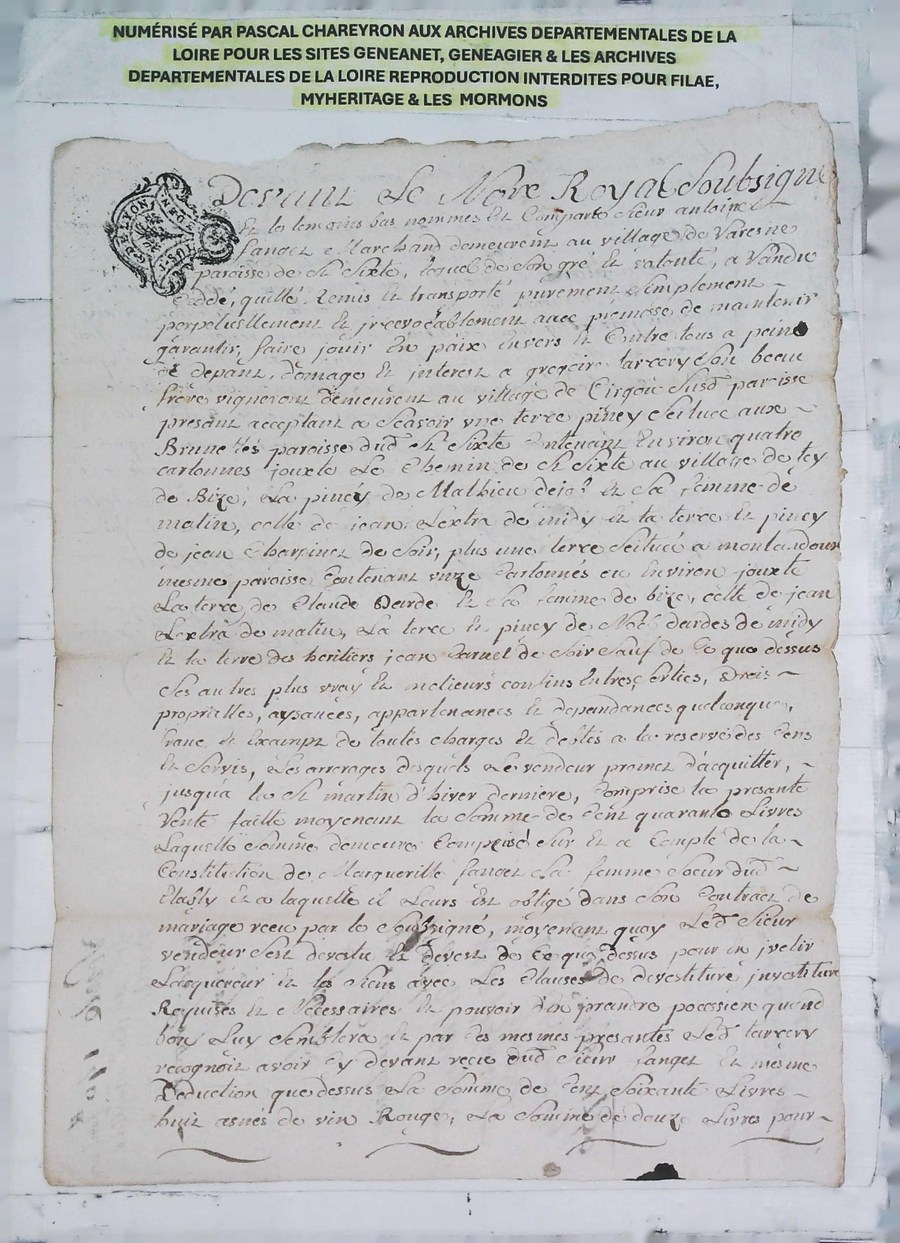 NUMÉRISÉ PAR PASCAL CHAREYRON AUX ARCHIVES DEPARTEMENTALES DE LA
LOIRE POUR LES SITES GENEANET, GENEAGIER & LES ARCHIVES
DEPARTEMENTALES DE LA LOIRE REPRODUCTION INTERDITES POUR FILAE,
MYHERITAGE & LES MORMONS
DE LYON
Devant Le Nore Royal Soubsigne
Et les temoins bas nommes Est Comparû sieur antoine
fanget Marchand demeurent au village de Varesne
paroisse de St Sixte, lequel de son gré et volonté, a Vandu
Ceddé, quitté, Remis Et transporté purement Simplement
perpetuellement Et jrrevocablement avec promesse de maintenir
garantir, faire jouir En paix Envers Et Contre tous a peine
de depant, domage Et interest a gregoire tarcery Son beau
frère vigneront demeurent au village de susd paroisse
presant acceptant a Scavoir une terre piney Scituee aux
Brunettes paroisse dud St Sixte Contenant Environ quatre
cartonnes jouxte Le Chemin de St Sixte au village de
de Bize, La piney de Mathieu Et Sa femme de
matin, celle de jean Lextra de midy Et la terre Et piney
de jean Charpinet de Soir, plus une terre Scituée a
mesme paroisse Contenant Cartonnes ou Environ jouxte
La terre de Claude Darde Et Sa femme de bize, celle de jean
Lextra de matin, La terre Et piney de Noël dardes de midy
Et la terre des heritiers jean de Soir Sauf de Ce que dessus
Ses autres plus vray Et melieurs confins Entres, Sorties, Drois
proprietes, aysances, appartenances Et dependances quelconques,
franc Et Exampt de toutes charges Et debtes a la reserve des Cens
Et Servis, Les arrerages desquels Le vendeur promet d'acquitter,
jusqua la St martin d'hiver derniere, Comprise la presante
Vente faitte moyenant la Somme de Cent quarante Livres
Laquelle Somme demeure Compensé Sur Et a Compte de la
Constitution de Margueritte fanget Sa femme Soeur dud
Et a laquelle il Leurs Est obligé dans Son Contract de
mariage receu par le Soubsigné, moyenant quoy Led Sieur
vendeur Sest devestu Et Devest de Ce que dessus pour en jvetir
Lacquereur Et les Siens avec Les Clauses de devestiture jnvestiture
Requises Et Nécessaires Et pouvoir d'en prandre pocession quand
bon Luy Semblera Et par Ces mesmes presantes Led tarcery
recognoit avoir Cy devant receu dud Sieur fanget Et mesme
Deduction que dessus La Somme de Cent Soixante Livres
huit asnés de vin Rouge, La Somme de douze Livres pour